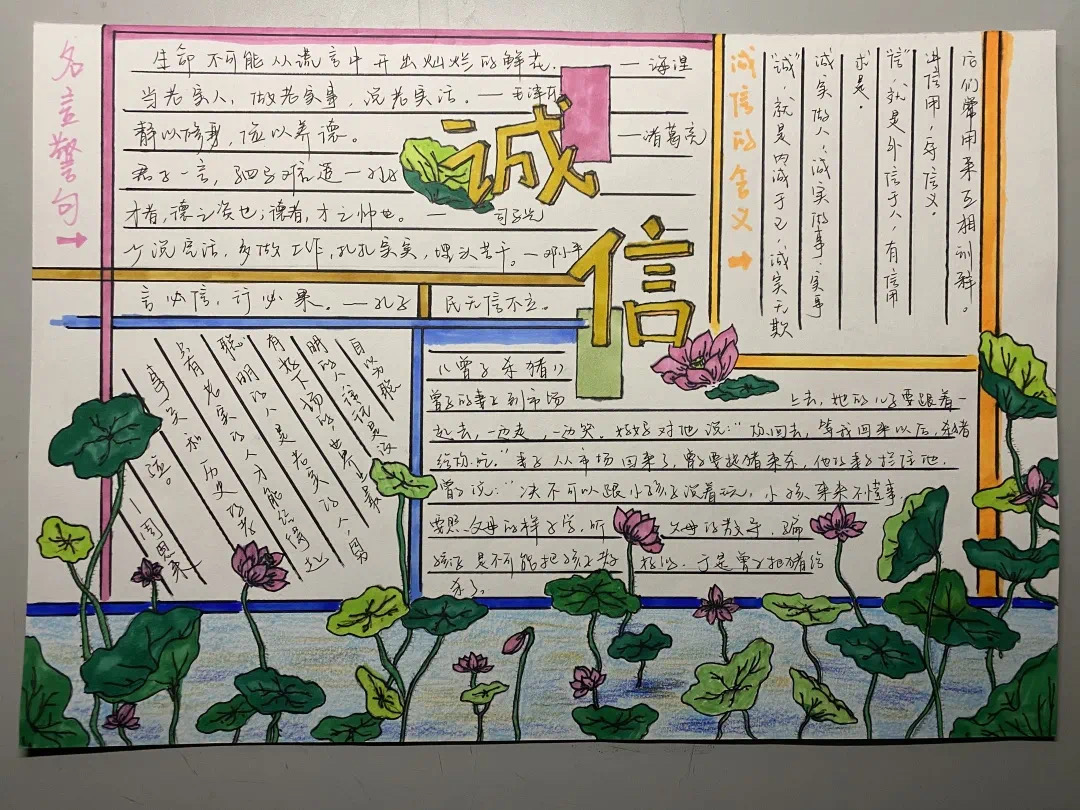 名言警句
生命不可能从谎言中开出灿烂的鲜花。——海涅
当老实人，做老实事，说老实话。——毛泽东
静以修身，俭以养德。——诸葛亮
君子一言，驷马难追——孔子
才者，德之资也；德者，才之帅也。——司马光
少说空话，多做工作，扎扎实实，埋头苦干。——邓小平
言必信，行必果。——孔子
民无信不立。
诚信
诚信的含义
"诚"，就是内诚于己，诚实无欺
诚实做人，诚实做事，实事
求是。
"信"，就是外信于人，有信用
讲信用，守信义。
后们常用来互相训释。
自以为聪
明的人往往是没
有好下场的，世界上最
聪明的人是老实的人，因
只有老实的人才能经得起
事实和历史的考
验。——周恩来
《曾子杀猪》
曾子的妻上到市场上去，她的儿子要跟着一
起去，一边走，一边哭。妈妈对他说："你回去，等我回来以后，杀猪
给你吃。"妻子从市场回来了，曾子要捉猪来杀，他的妻子拦住他
曾子说："决不可以跟小孩子说着玩，小孩本来不懂事
要照父母的样子学，听父母的教导，骗
孩子是不可能把孩子教好的。于是曾子把猪给
杀了。